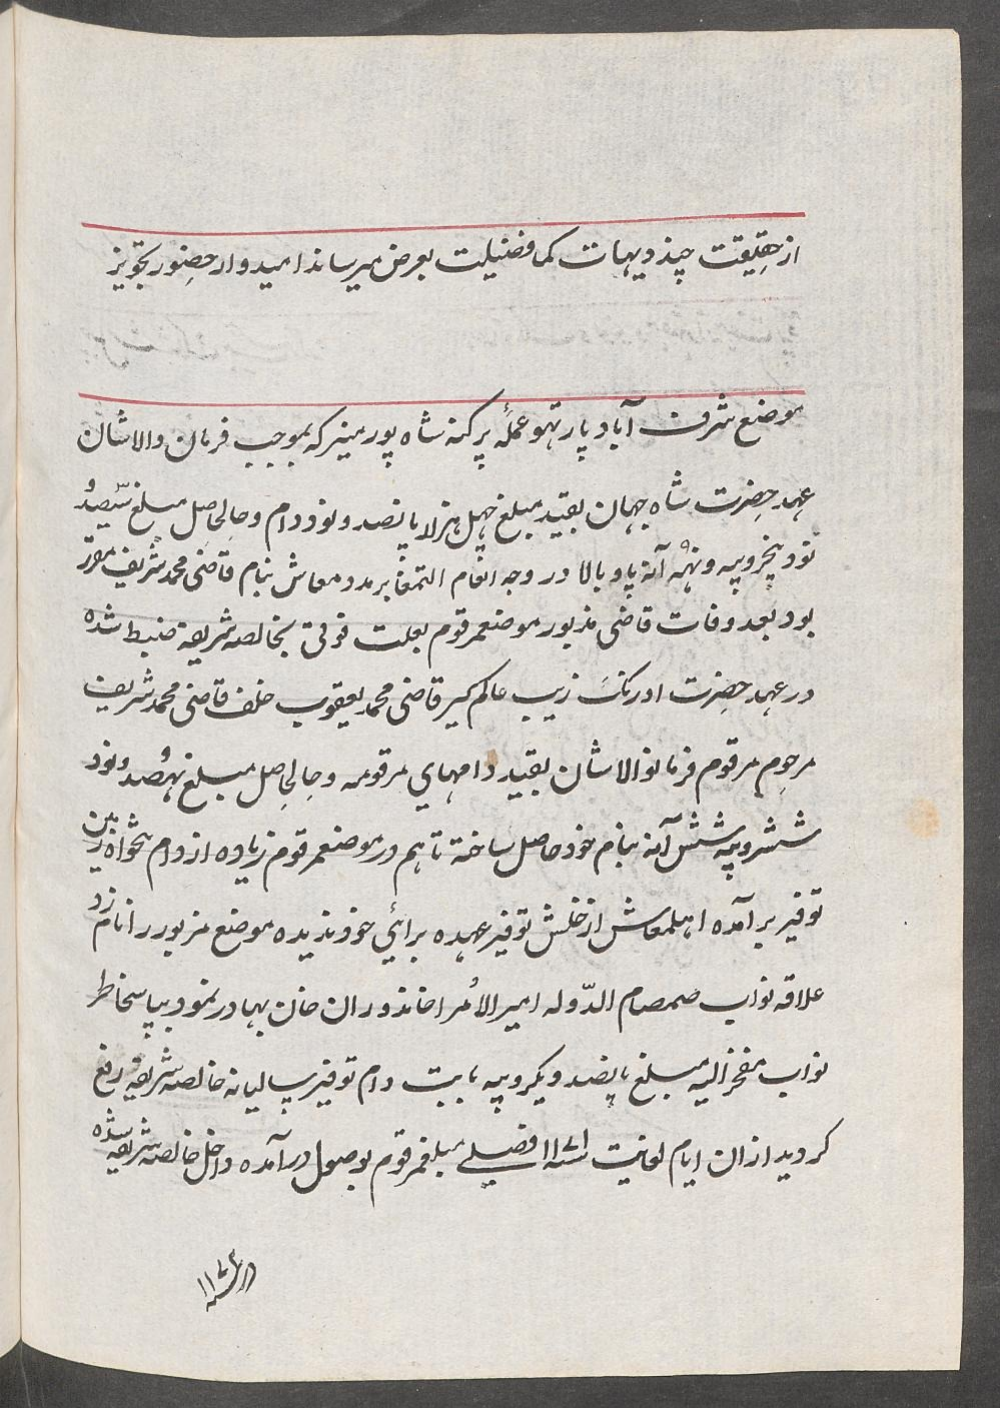 از حقیقت چند دیهات کما فضیلت بعرض میرساند امیدوار حضور تجویز
موضع شرف آباد پارتهو عملهٔ پرگنه شاه پور منیر که بموجب فرمان والاشان
عهد حضرت شاه جهان بقید مبلغ چهل هزار پانصد و نود دام و حالحاصل مبلغ سیصد و
نود پنجروپیه و نهه آنه پاو بالا در وجه انعام التمغا بر مدد معاش بنام قاضی محمد شریف مقرر
بود بعد وفات قاضی مذبور موضعمرقوم بعلت فوتی بخالصه شریفه ضبط شده
در عهد حضرت اورنگ زیب عالم گیر قاضی محمد یعقوب خلف قاضی محمد شریف
مرحوم مرقوم فرمانوالاشان بقید دامهای مرقومه و حالحاصل مبلغ نهصد و نود
ششروپیه شش آنه بنام خود حاصل ساخته تا هم در موضعمرقوم زیاده از دام تنخواه زمین
توفیر برآمده اهلمعاش از خلش توفیر عهده برائی خود ندیده موضع مزبور را نامزد
علاقه نواب صمصام الدّوله امیر الأمرا خاندوران خان بهادر نمود بپاسخاطر
نواب مفخر الیه مبلغ پانصد و یکروپیه بابت دام توفیر سالیانه خالصه شریفه رفع
کردید ازان ایام لغایت سنه ۱۱۷۱ فصلی مبلغمرقوم بوصول درآمده داخل خالصه شریفه شده